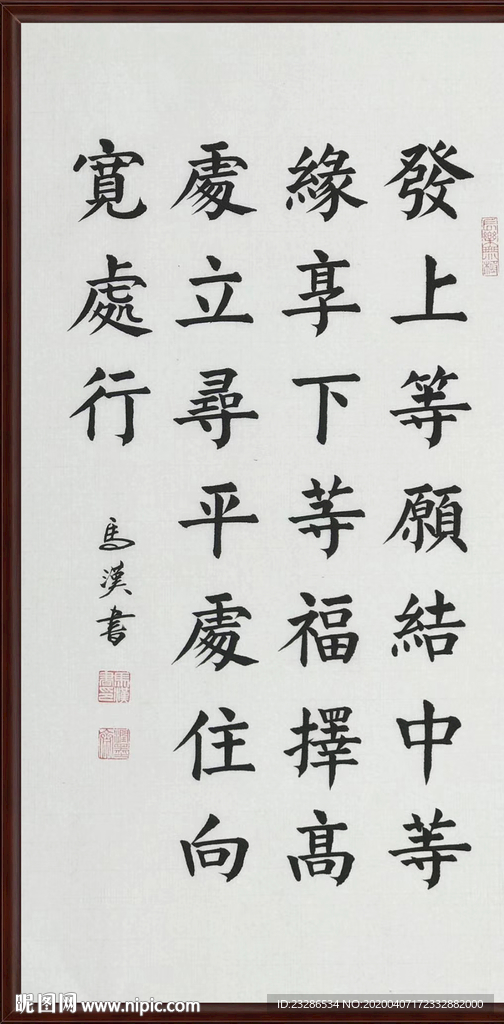 發上等願結中等
緣享下等福擇高
處立尋平處住向
寬處行
馬漢書
昵图网 www.nipic.com
ID:23286534 NO:20200407172332882000